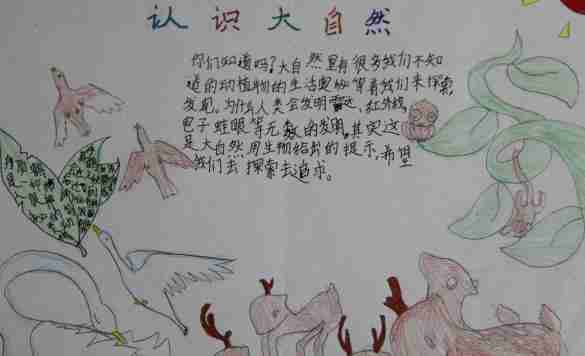 认识大自然
你们知道吗?大自然里有很多我们不知
道的动植物的生活奥秘等着我们来探索,
发现。为什么人类会发明雷达、红外线、
电子蛙眼等无数的发明,其实这
是大自然用生物给出的提示,希望
我们去探索去追求。